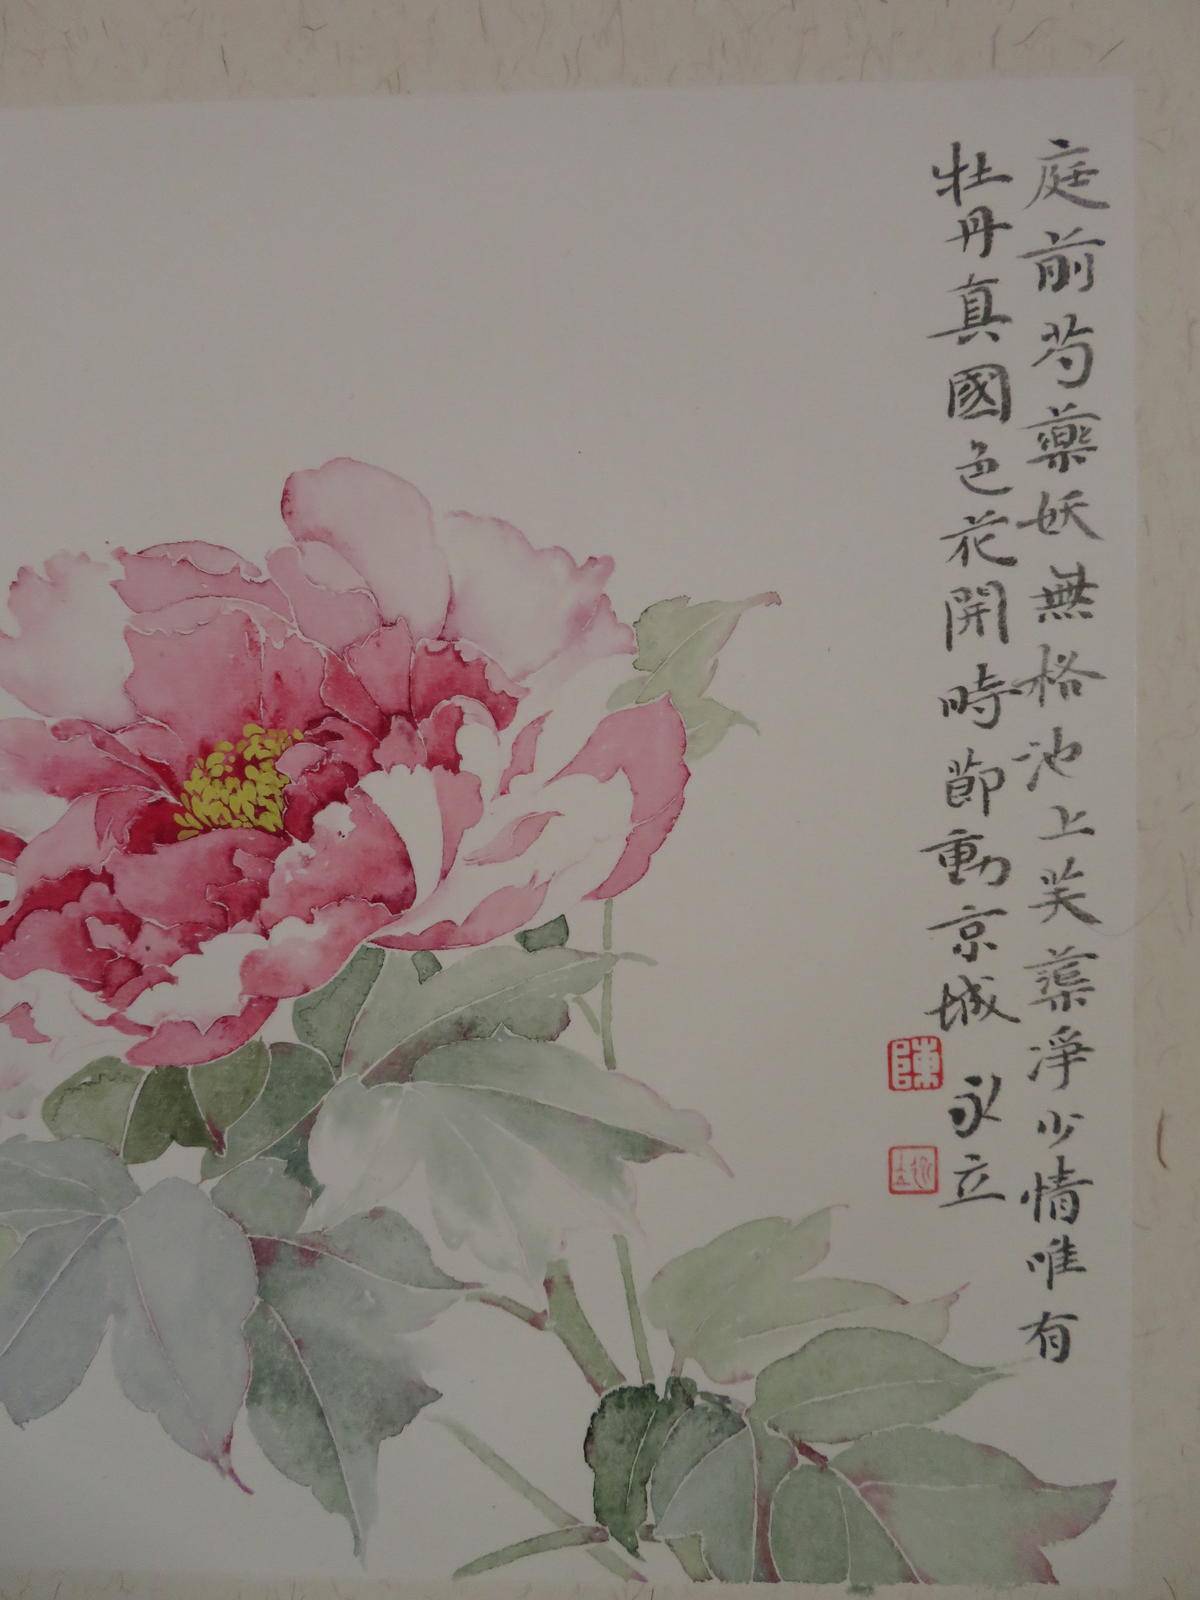 庭前芍藥妖無格池上芙蕖淨少情唯有
牡丹真國色花開時節動京城 永立
陳
永立